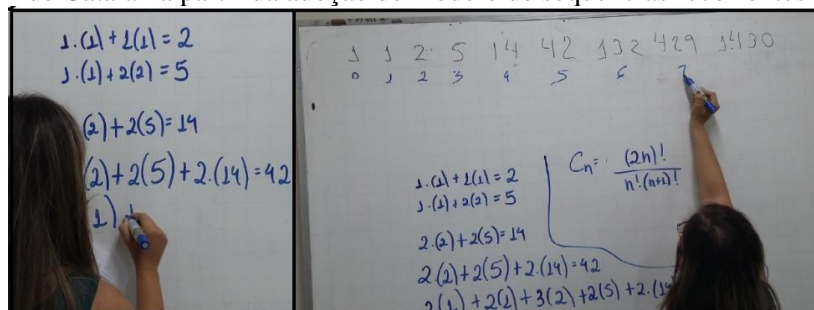 1.(1)+1(1)=2
1.(1)+2(2)=5
(2)+2(5)=14
(2)+2(5)+2.(14)=42
1)
1 1 2 5 14 42 132 429 1430
0 1 2 3 4 5 6 7
1.(1)+1(1)=2
1.(1)+2(2)=5
2.(2)+2(5)=14
2.(2)+2(5)+2.(14)=42
2(1)+2(1)+3(2)+2(5)+2.(14
Cn= (2n)!
n!.(n+1)!